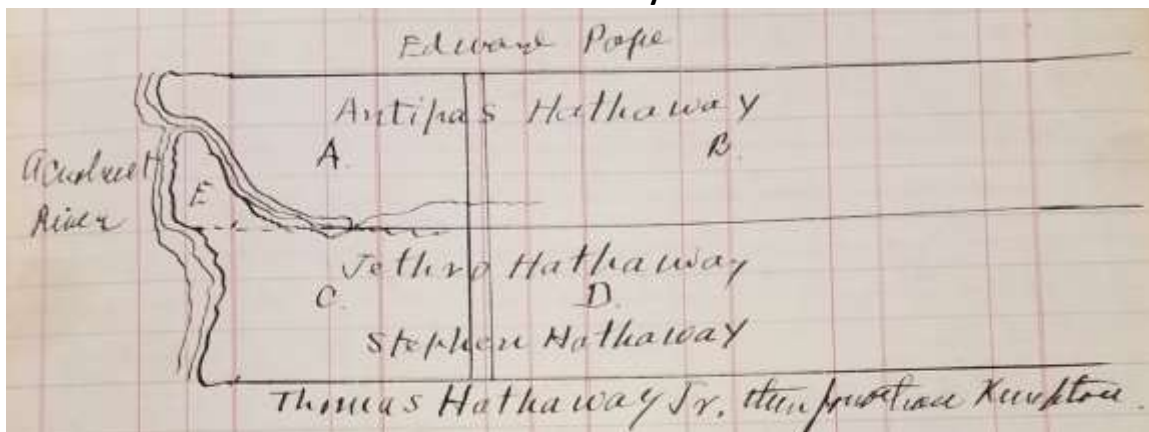 Edward Pope
Antipas Hathaway
A. B.
Acushnet
River
E
Jethro Hathaway
C. D.
Stephen Hathaway
Thomas Hathaway Jr. then Jonathan Kempton.